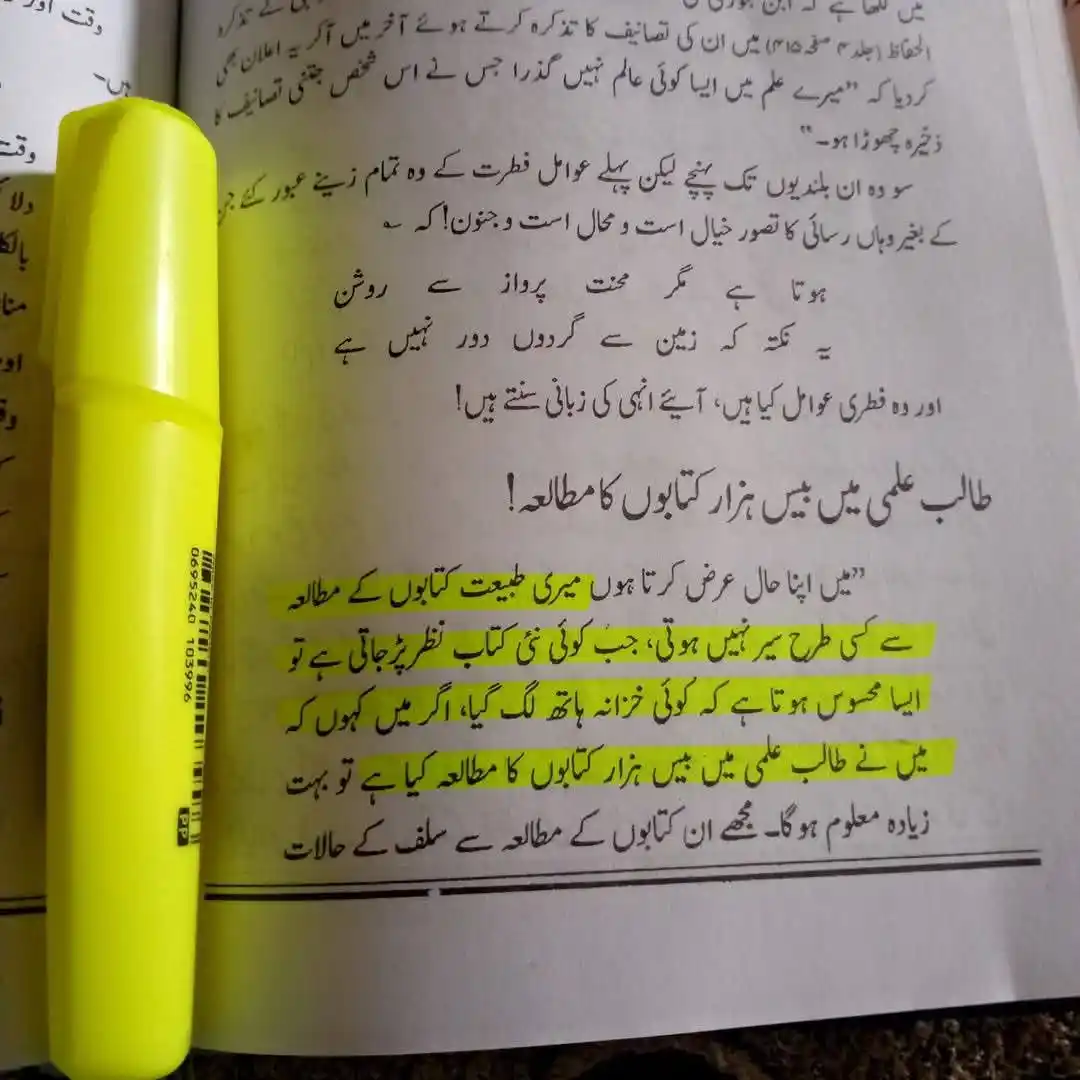 میں لکھا ہے کہ ابن جوزی کی
الحفاظ (جلد ۴ صفحہ ۴۱۵) میں ان کی تصانیف کا تذکرہ کرتے ہوئے آخر میں آکر یہ اعلان بھی
کردیا کہ ”میرے علم میں ایسا کوئی عالم نہیں گذرا جس نے اس شخص جتنی تصانیف کا
ذخیرہ چھوڑا ہو۔“
سو وہ ان بلندیوں تک پہنچے لیکن پہلے عوامل فطرت کے وہ تمام زینے عبور کئے جن
کے بغیر وہاں رسائی کا تصور خیال است و محال است و جنوں! کہ ؎
ہوتا ہے مگر محنت پرواز سے روشن
یہ نکتہ کہ زمین سے گردوں دور نہیں ہے
اور وہ فطری عوامل کیا ہیں، آیئے انہی کی زبانی سنتے ہیں!
طالب علمی میں بیس ہزار کتابوں کا مطالعہ!
”میں اپنا حال عرض کرتا ہوں میری طبیعت کتابوں کے مطالعہ
سے کسی طرح سیر نہیں ہوتی، جب کوئی نئی کتاب نظر پڑجاتی ہے تو
ایسا محسوس ہوتا ہے کہ کوئی خزانہ ہاتھ لگ گیا، اگر میں کہوں کہ
میں نے طالب علمی میں بیس ہزار کتابوں کا مطالعہ کیا ہے تو بہت
زیادہ معلوم ہوگا۔ مجھے ان کتابوں کے مطالعہ سے سلف کے حالات
وقت اور
ہیں۔
0695240 103996
PP